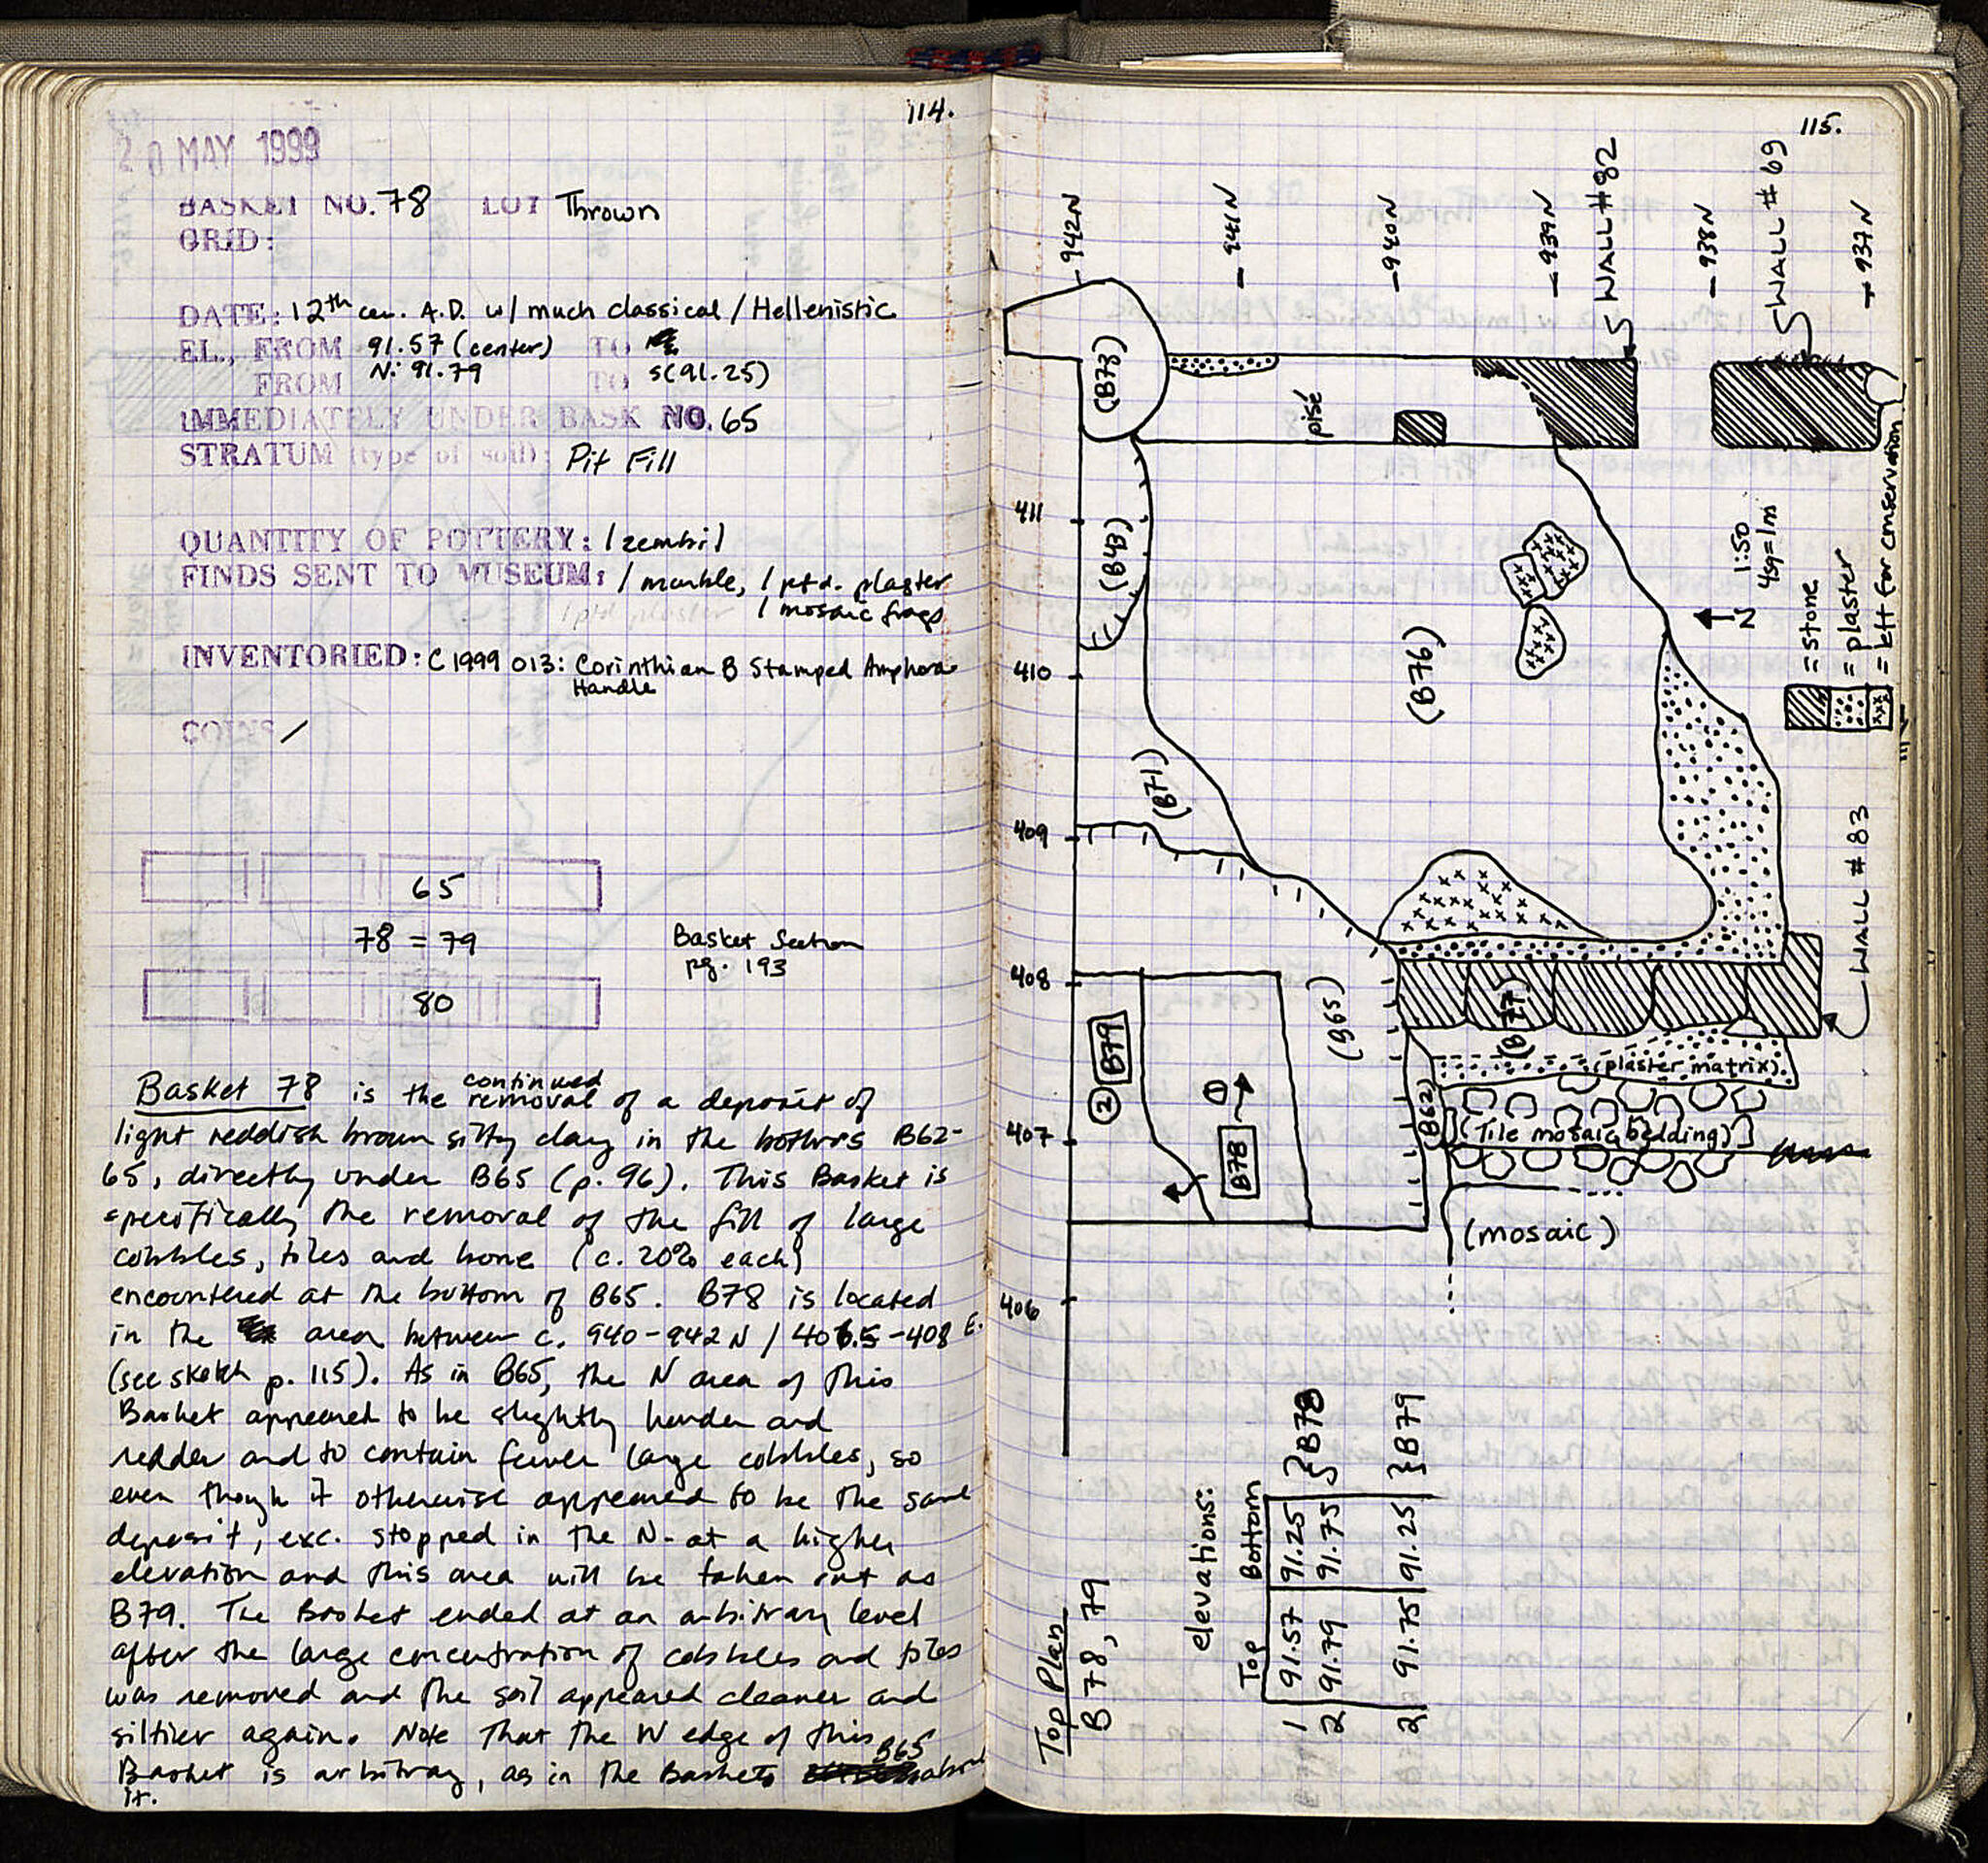 114.
20 MAY 1999
BASKET NO. 78 LOT Thrown
GRID:
DATE: 12th cen. A.D. w/ much classical / Hellenistic
EL., FROM 91.57 (center) TO
N: 91.79
FROM TO S(91.25)
IMMEDIATELY UNDER BASK NO. 65
STRATUM (type of soil): Pit Fill
QUANTITY OF POTTERY: 1 zembil
FINDS SENT TO MUSEUM: 1 marble, 1 ptd. plaster
1 ptd plaster 1 mosaic frags
INVENTORIED: C 1999 013: Corinthian B Stamped Amphora
Handle
COINS /
65
78 = 79
Basket Section
pg. 193
80
Basket 78 is the continued removal of a deposit of
light reddish brown silty clay in the bothros B62-
65, directly under B65 (p. 96). This Basket is
specifically the removal of the fill of large
cobbles, tiles and bone (c. 20% each)
encountered at the bottom of B65. B78 is located
in the area between c. 940-942 N / 406.5-408 E.
(see sketch p. 115). As in B65, the N area of this
Basket appeared to be slightly harder and
redder and to contain fewer large cobbles, so
even though it otherwise appeared to be the same
deposit, exc. stopped in the N - at a higher
elevation and this area will be taken out as
B79. The Basket ended at an arbitrary level
after the large concentration of cobbles and tiles
was removed and the soil appeared cleaner and
siltier again. Note that the W edge of this
Basket is arbitrary, as in the Baskets B65 above
it.
115.
942N
941N
940N
939N
WALL #82
938N
WALL #69
937N
(B73)
pisé
411
(B43)
410
(B76)
N
1:50
4sq=1m
= stone
= plaster
= left for conservation
(B71)
409
WALL #83
408
(B65)
(B77)
(plaster matrix)
② B79
① B78
(B62)
407
(Tile mosaic bedding)
(mosaic)
406
Top Plan
B 78, 79
elevations:
Top Bottom
1 91.57 91.25 } B78
2 91.79 91.75
2 91.75 91.25 } B79